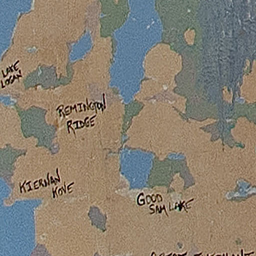 LAKE
LOGAN
REMINGTON
RIDGE
KIERNAN
KOVE
GOOD
SAM LAKE